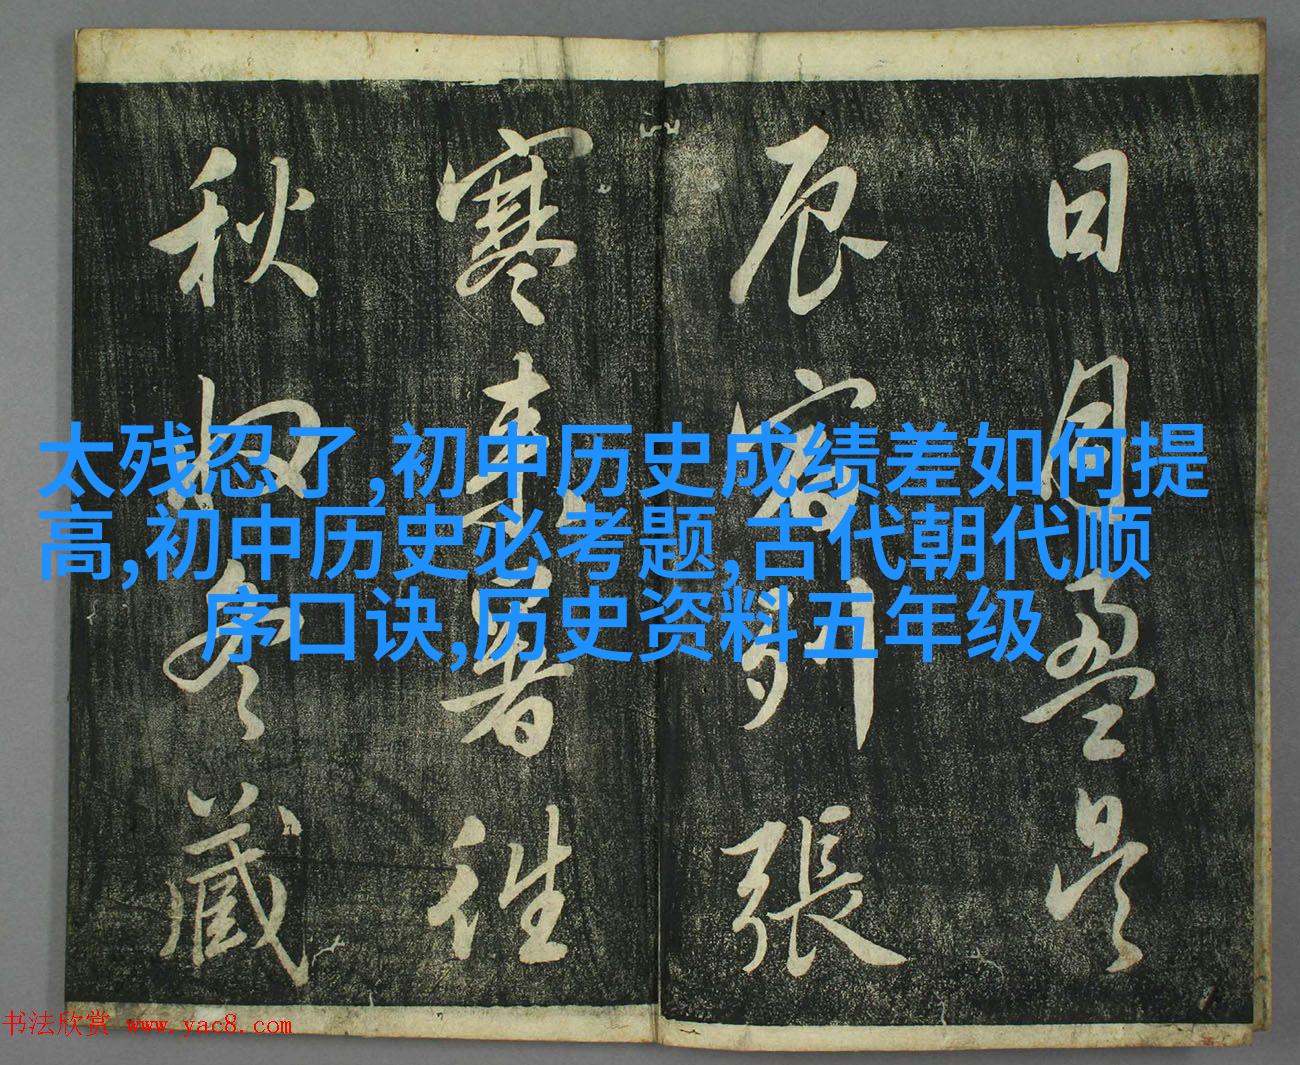 日月盈昃
辰宿列張
寒来暑往
秋收冬藏
太残忍了,初中历史成绩差如何提
高,初中历史必考题,古代朝代顺
序口诀,历史资料五年级
书法欣赏 www.yac8.com